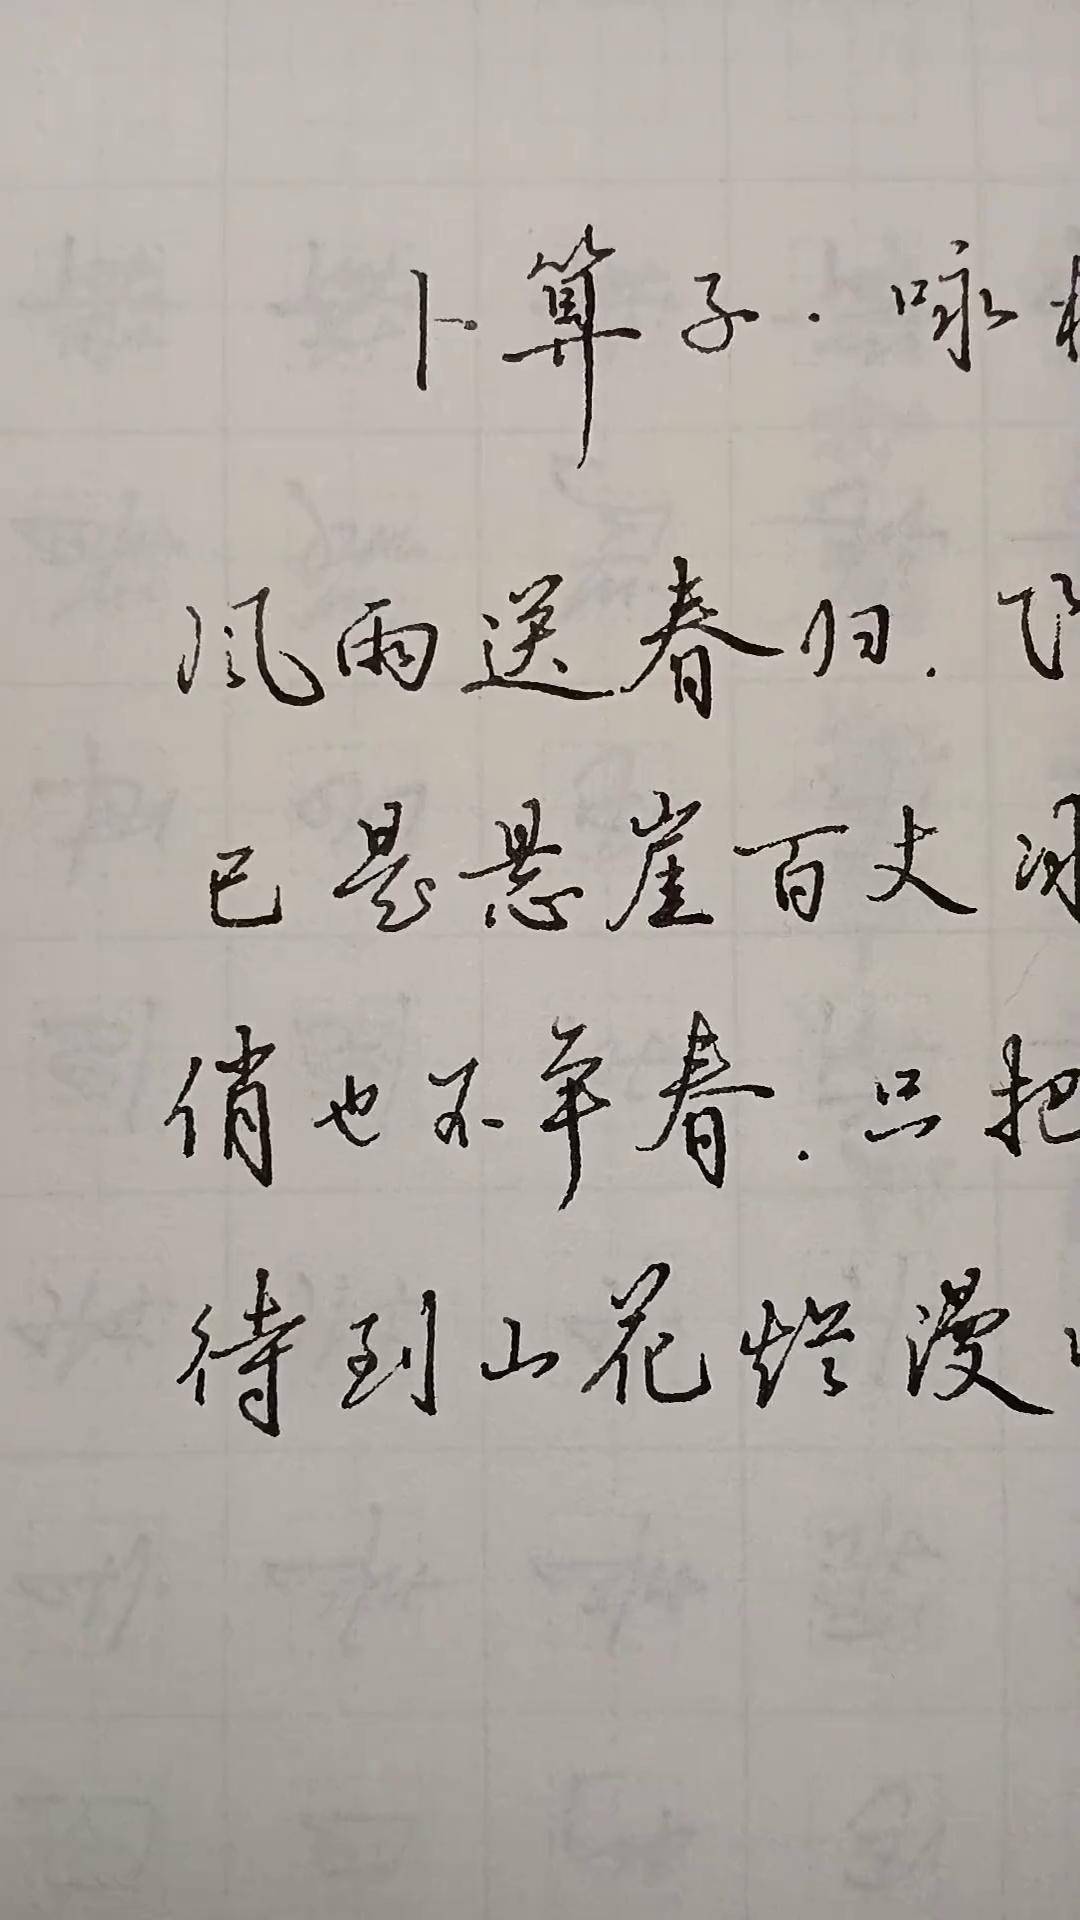 卜算子·咏
风雨送春归.飞
已是悬崖百丈冰
俏也不争春.只把
待到山花烂漫